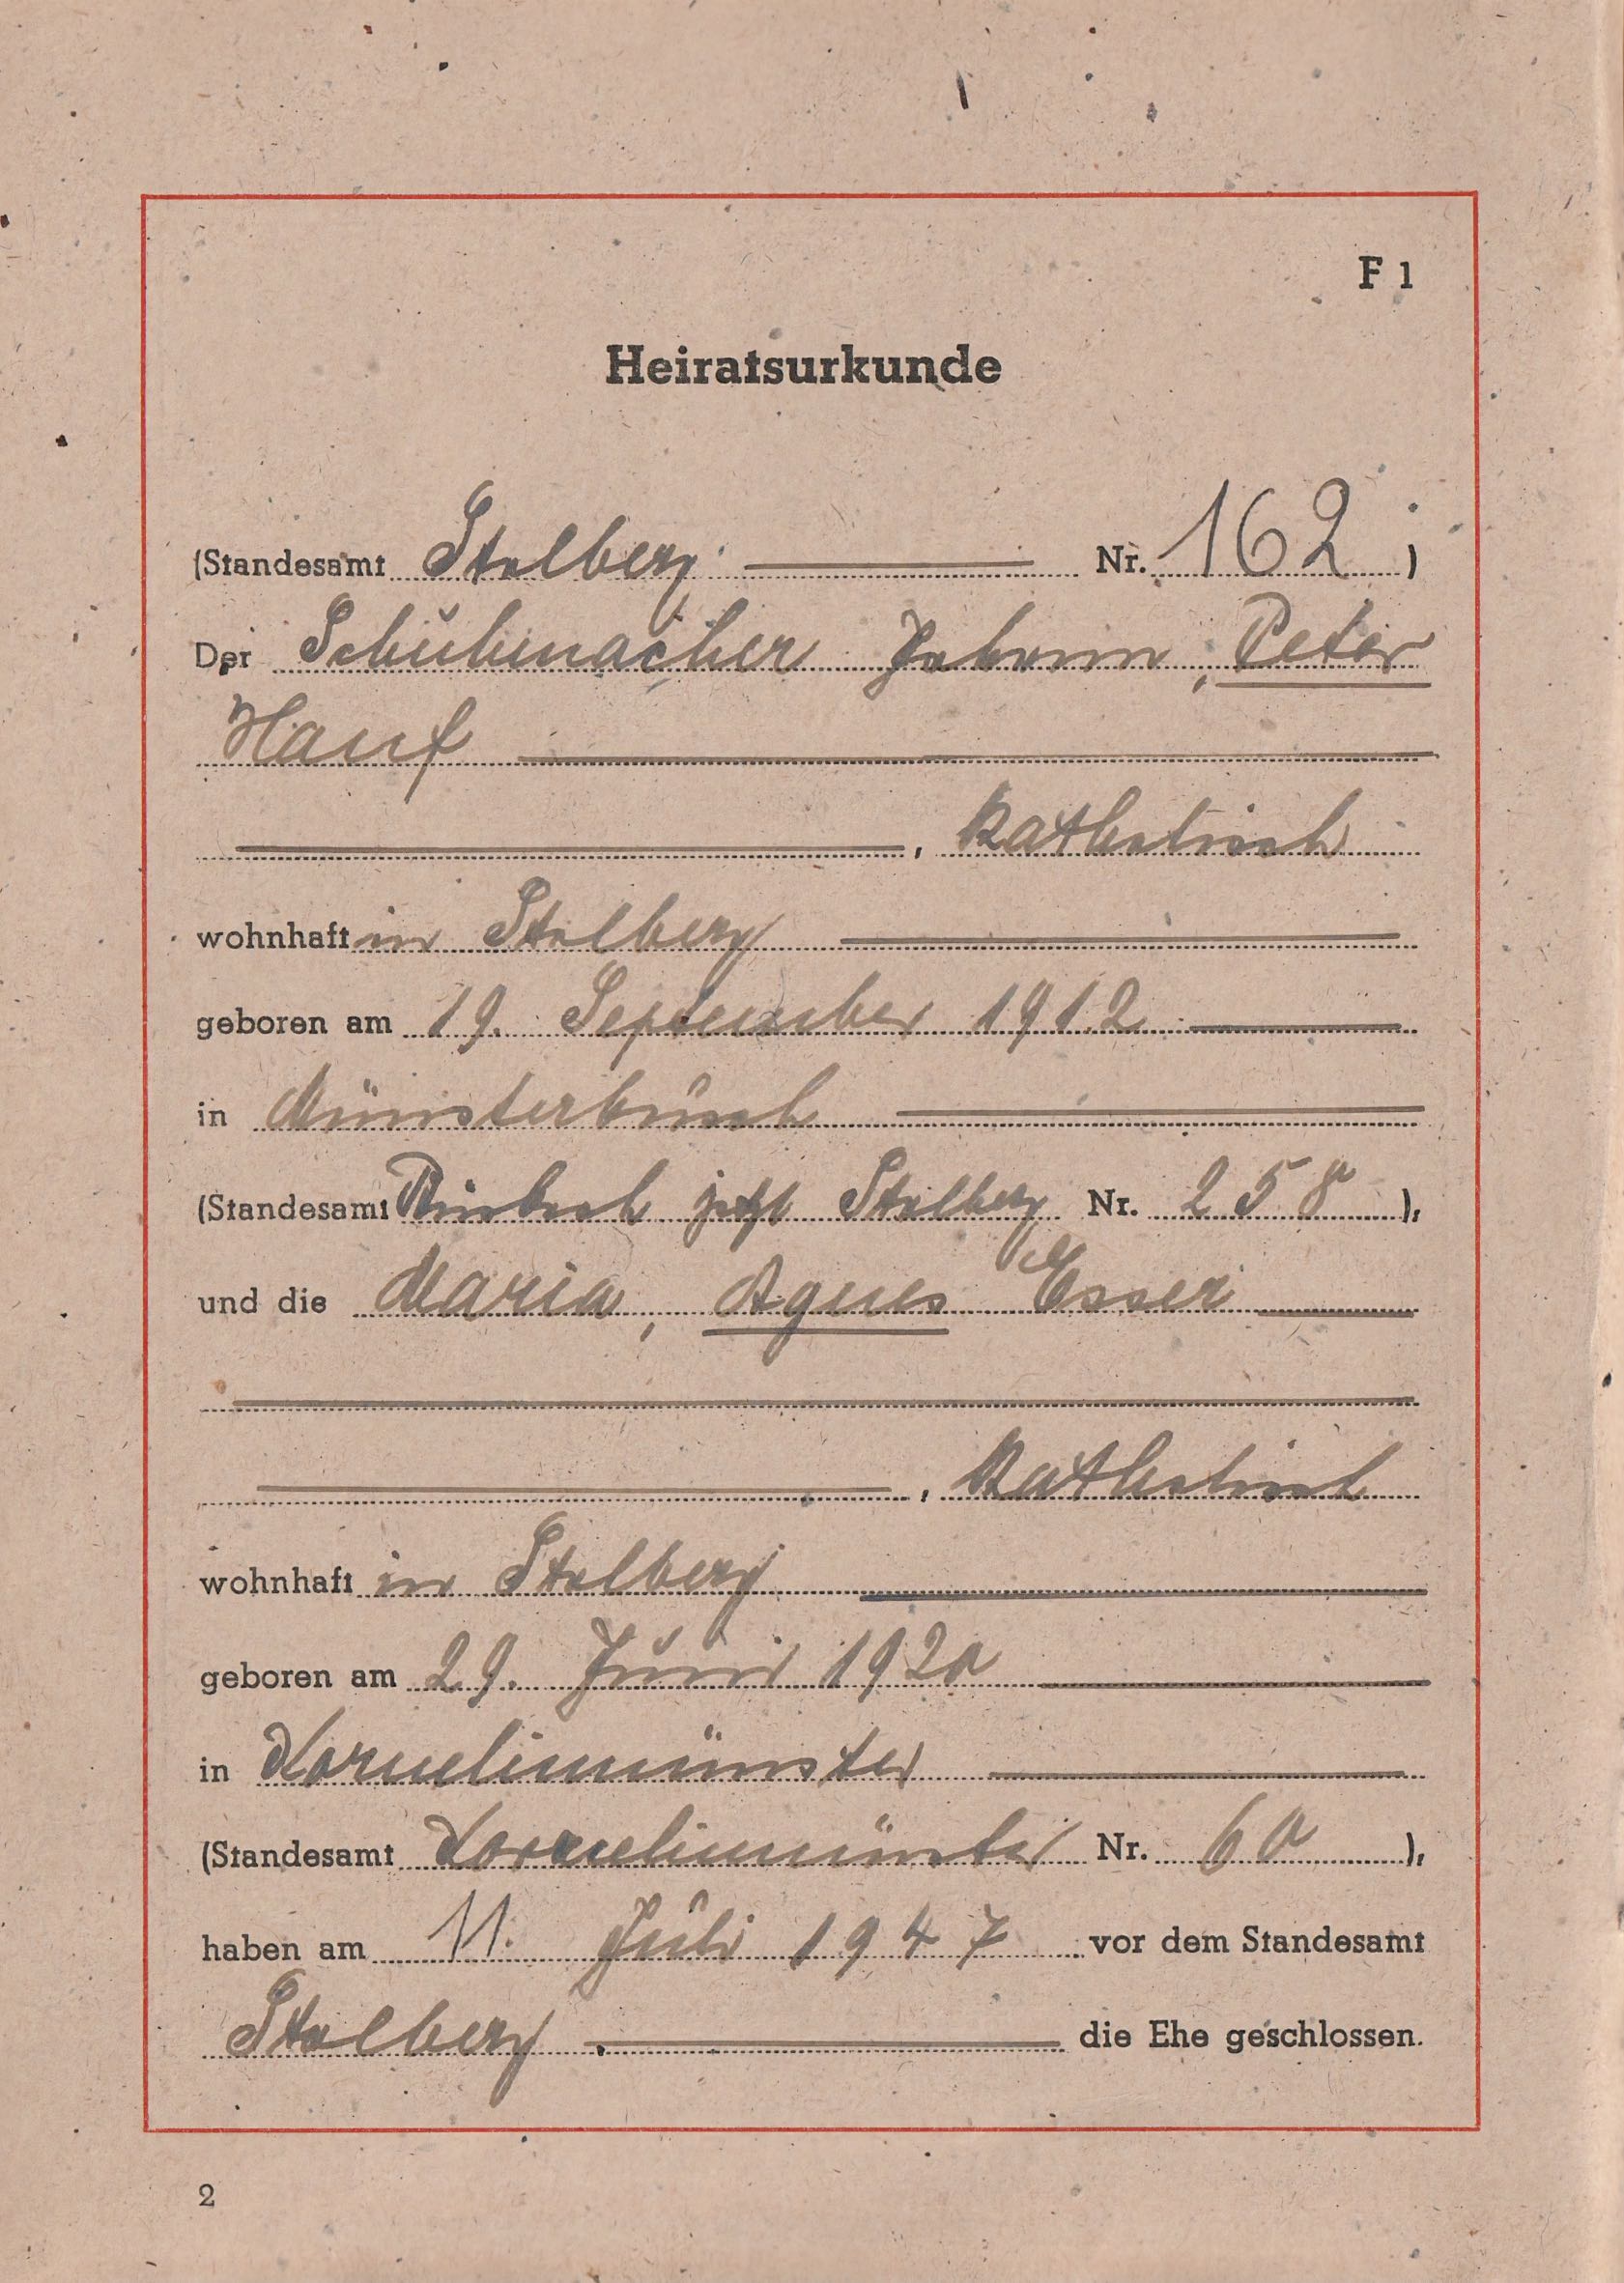 F 1
Heiratsurkunde
(Standesamt Stolberg Nr. 162 )
Der Schuhmacher Johann, Peter
Hanf
, katholisch
wohnhaft in Stolberg
geboren am 19. September 1912
in Münsterbusch
(Standesamt Büsbach jetzt Stolberg Nr. 258 ),
und die Maria, Agnes Esser
, katholisch
wohnhaft in Stolberg
geboren am 29. Juni 1920
in Kornelimünster
(Standesamt Kornelimünster Nr. 60 ),
haben am 11. Juli 1947 vor dem Standesamt
Stolberg die Ehe geschlossen.
2